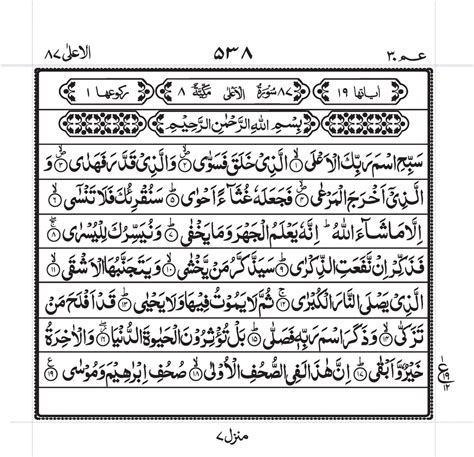 عـم ۳۰ ۵۳۸ الاعلٰی ۸۷
اٰیاتها ۱۹ ۸۷ سُوْرَةُ الْاَعْلٰى مَكِّيَّةٌ ۸ رکوعها ۱
بِسْمِ اللّٰهِ الرَّحْمٰنِ الرَّحِيْمِ
سَبِّحِ اسْمَ رَبِّكَ الْاَعْلَى ۙ﴿۱﴾ الَّذِيْ خَلَقَ فَسَوّٰى ۪ۙ﴿۲﴾ وَالَّذِيْ قَدَّرَ فَهَدٰى ۪ۙ﴿۳﴾ وَ
الَّذِيْۤ اَخْرَجَ الْمَرْعٰى ۪ۙ﴿۴﴾ فَجَعَلَهٗ غُثَآءً اَحْوٰى ؕ﴿۵﴾ سَنُقْرِئُكَ فَلَا تَنْسٰۤى ۙ﴿۶﴾
اِلَّا مَا شَآءَ اللّٰهُ ؕ اِنَّهٗ يَعْلَمُ الْجَهْرَ وَمَا يَخْفٰى ؕ﴿۷﴾ وَنُيَسِّرُكَ لِلْيُسْرٰى ۚۖ﴿۸﴾
فَذَكِّرْ اِنْ نَّفَعَتِ الذِّكْرٰى ؕ﴿۹﴾ سَيَذَّكَّرُ مَنْ يَّخْشٰى ۙ﴿۱۰﴾ وَيَتَجَنَّبُهَا الْاَشْقَى ۙ﴿۱۱﴾
الَّذِيْ يَصْلَى النَّارَ الْكُبْرٰى ۚ﴿۱۲﴾ ثُمَّ لَا يَمُوْتُ فِيْهَا وَلَا يَحْيٰى ؕ﴿۱۳﴾ قَدْ اَفْلَحَ مَنْ
تَزَكّٰى ۙ﴿۱۴﴾ وَذَكَرَ اسْمَ رَبِّهٖ فَصَلّٰى ؕ﴿۱۵﴾ بَلْ تُؤْثِرُوْنَ الْحَيٰوةَ الدُّنْيَا ۫ۖ﴿۱۶﴾ وَالْاٰخِرَةُ
خَيْرٌ وَّاَبْقٰى ؕ﴿۱۷﴾ اِنَّ هٰذَا لَفِى الصُّحُفِ الْاُوْلٰى ۙ﴿۱۸﴾ صُحُفِ اِبْرٰهِيْمَ وَمُوْسٰى ﴿۱۹﴾
ع ۱۹ ۱۲
منزل ۷